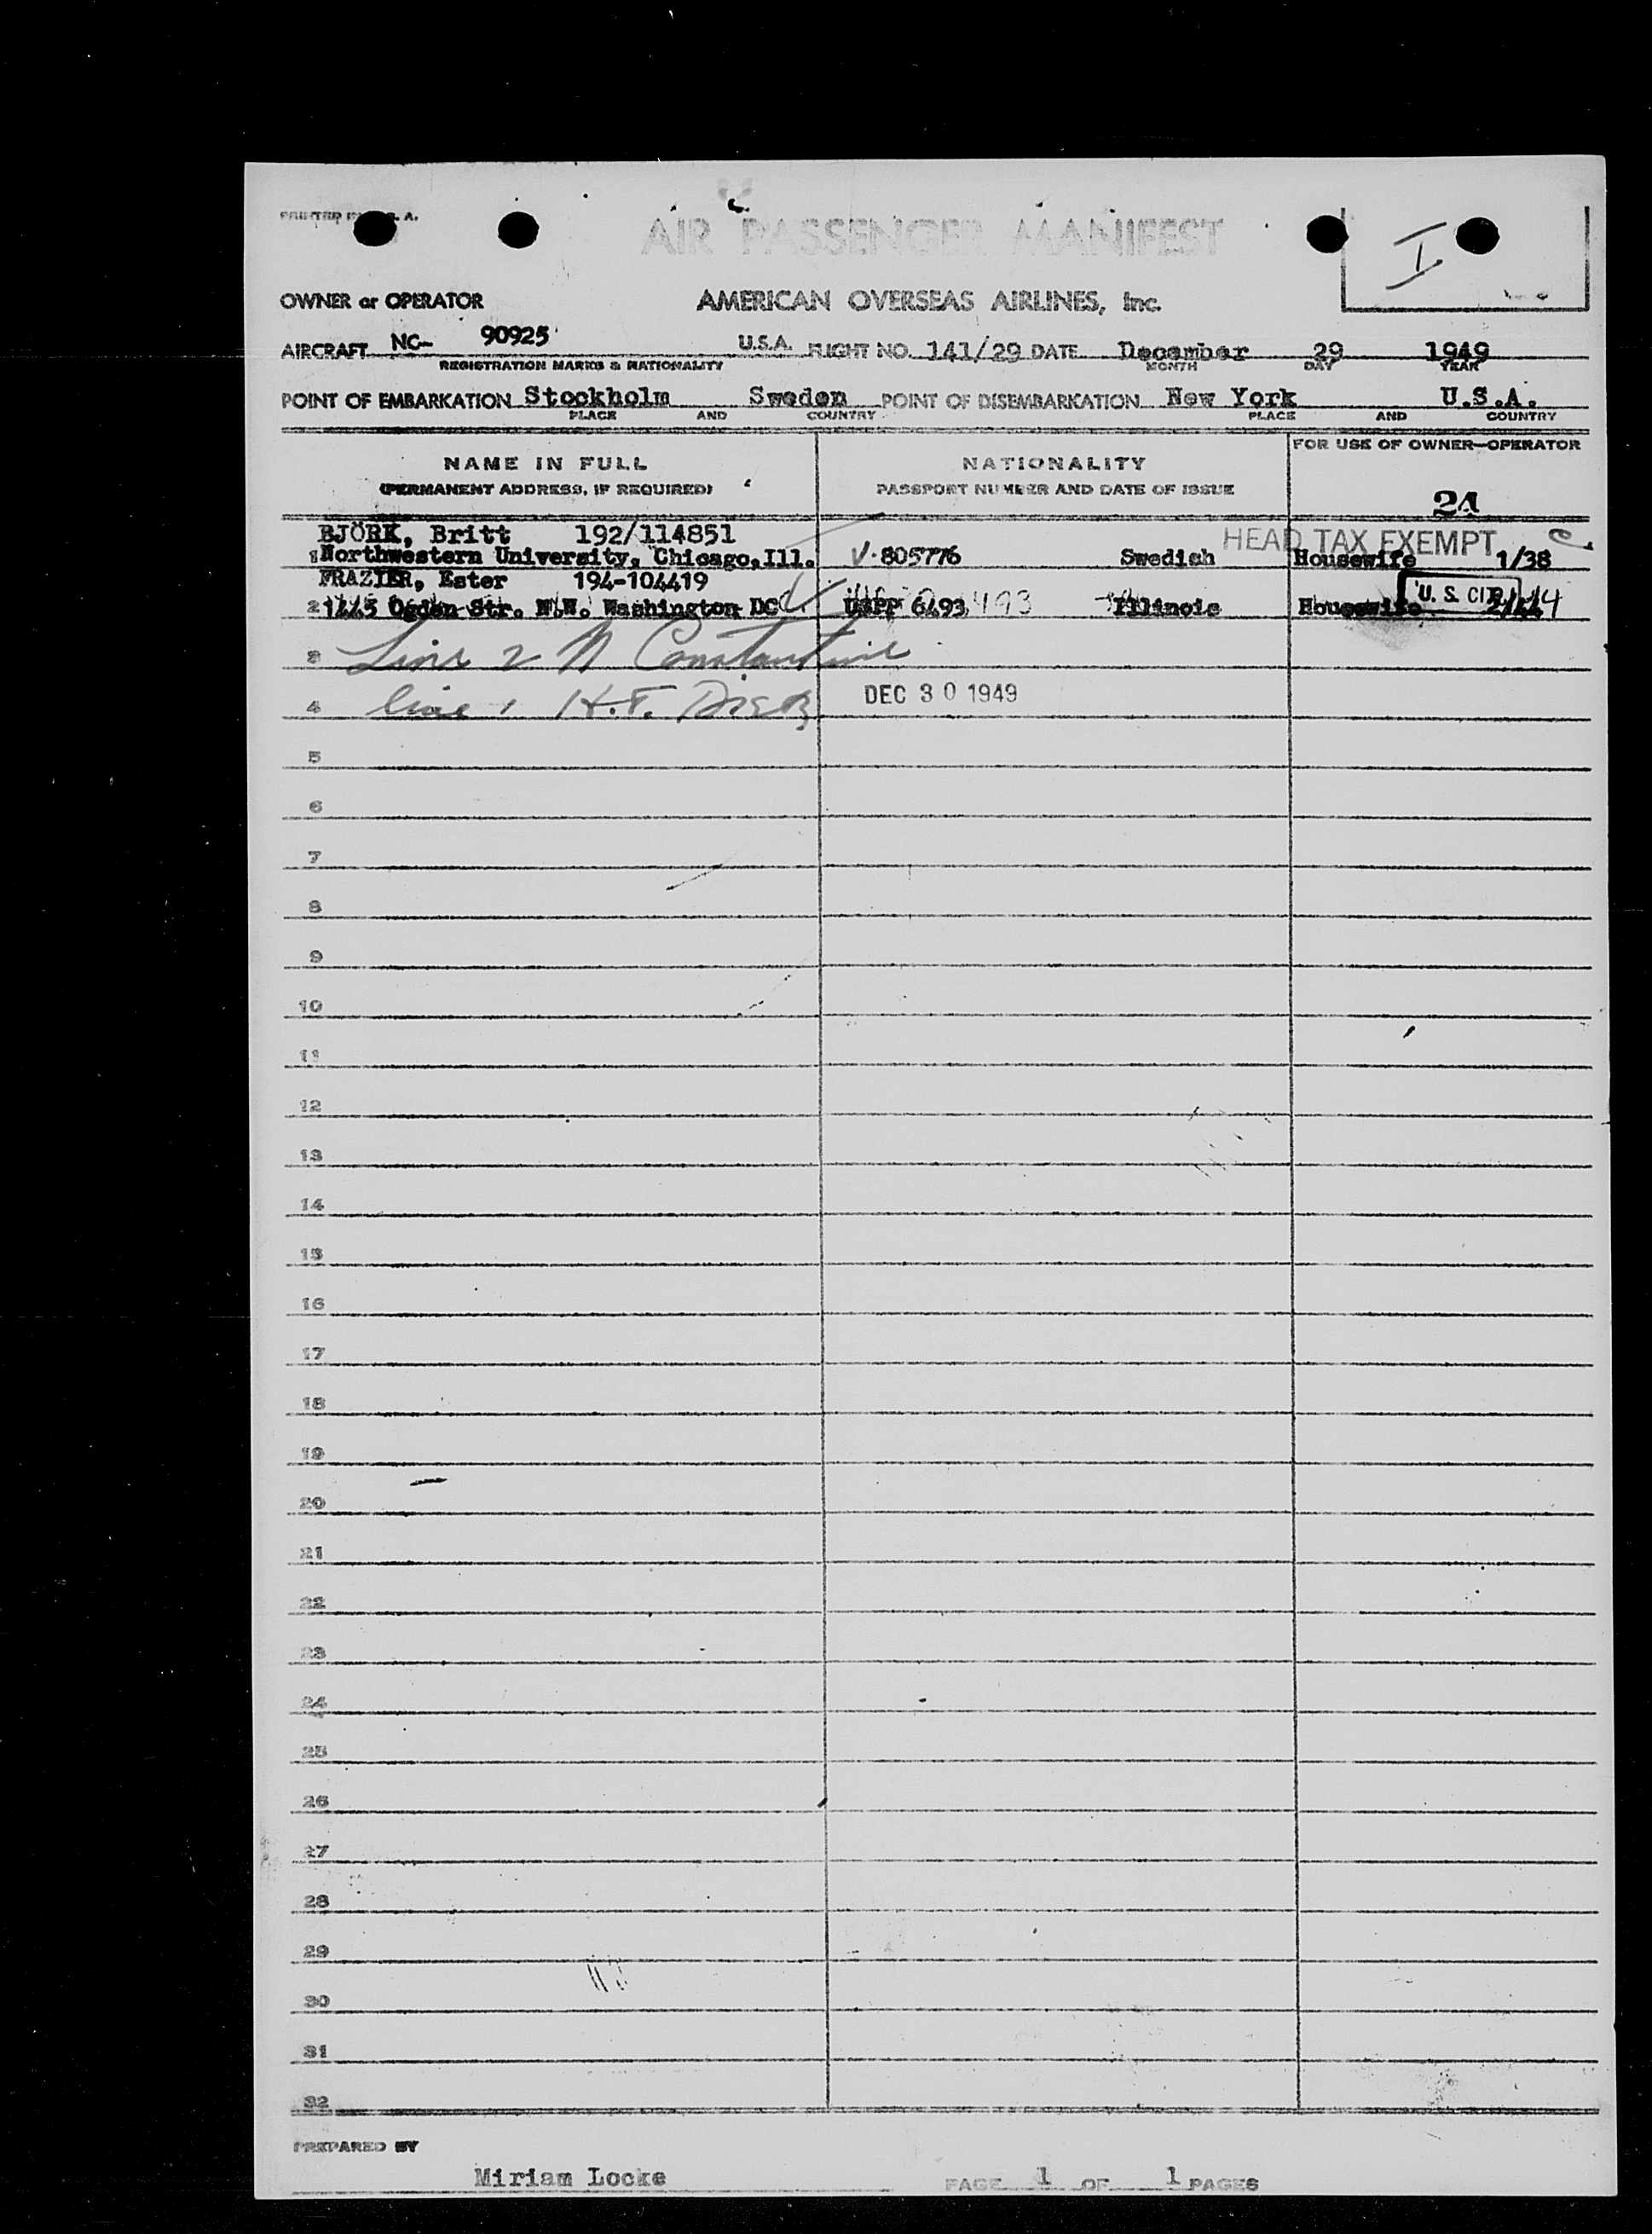 PRINTED IN U. S. A.
AIR PASSENGER MANIFEST
I
OWNER or OPERATOR AMERICAN OVERSEAS AIRLINES, Inc.
AIRCRAFT NC- 90925 U.S.A. FLIGHT NO. 141/29 DATE December 29 1949
REGISTRATION MARKS & NATIONALITY MONTH DAY YEAR
POINT OF EMBARKATION Stockholm Sweden POINT OF DISEMBARKATION New York U.S.A.
PLACE AND COUNTRY PLACE AND COUNTRY
FOR USE OF OWNER-OPERATOR
NAME IN FULL NATIONALITY
(PERMANENT ADDRESS, IF REQUIRED) PASSPORT NUMBER AND DATE OF ISSUE
24
BJÖRK, Britt 192/114851 HEAD TAX EXEMPT
Northwestern University, Chicago,Ill. V. 805776 Swedish Housewife 1/38
FRAZIER, Ester 194-104419 U. S. CIT
2 1445 Ogden Str. N.W. Washington DC USPP 6493 493 Illinois Housewife
3 Line 2 N Constantine
4 line 1 H.F. DEC 30 1949
5
6
7
8
9
10
11
12
13
14
15
16
17
18
19
20
21
22
23
24
25
26
27
28
29
30
31
32
PREPARED BY
Miriam Locke PAGE 1 OF 1 PAGES